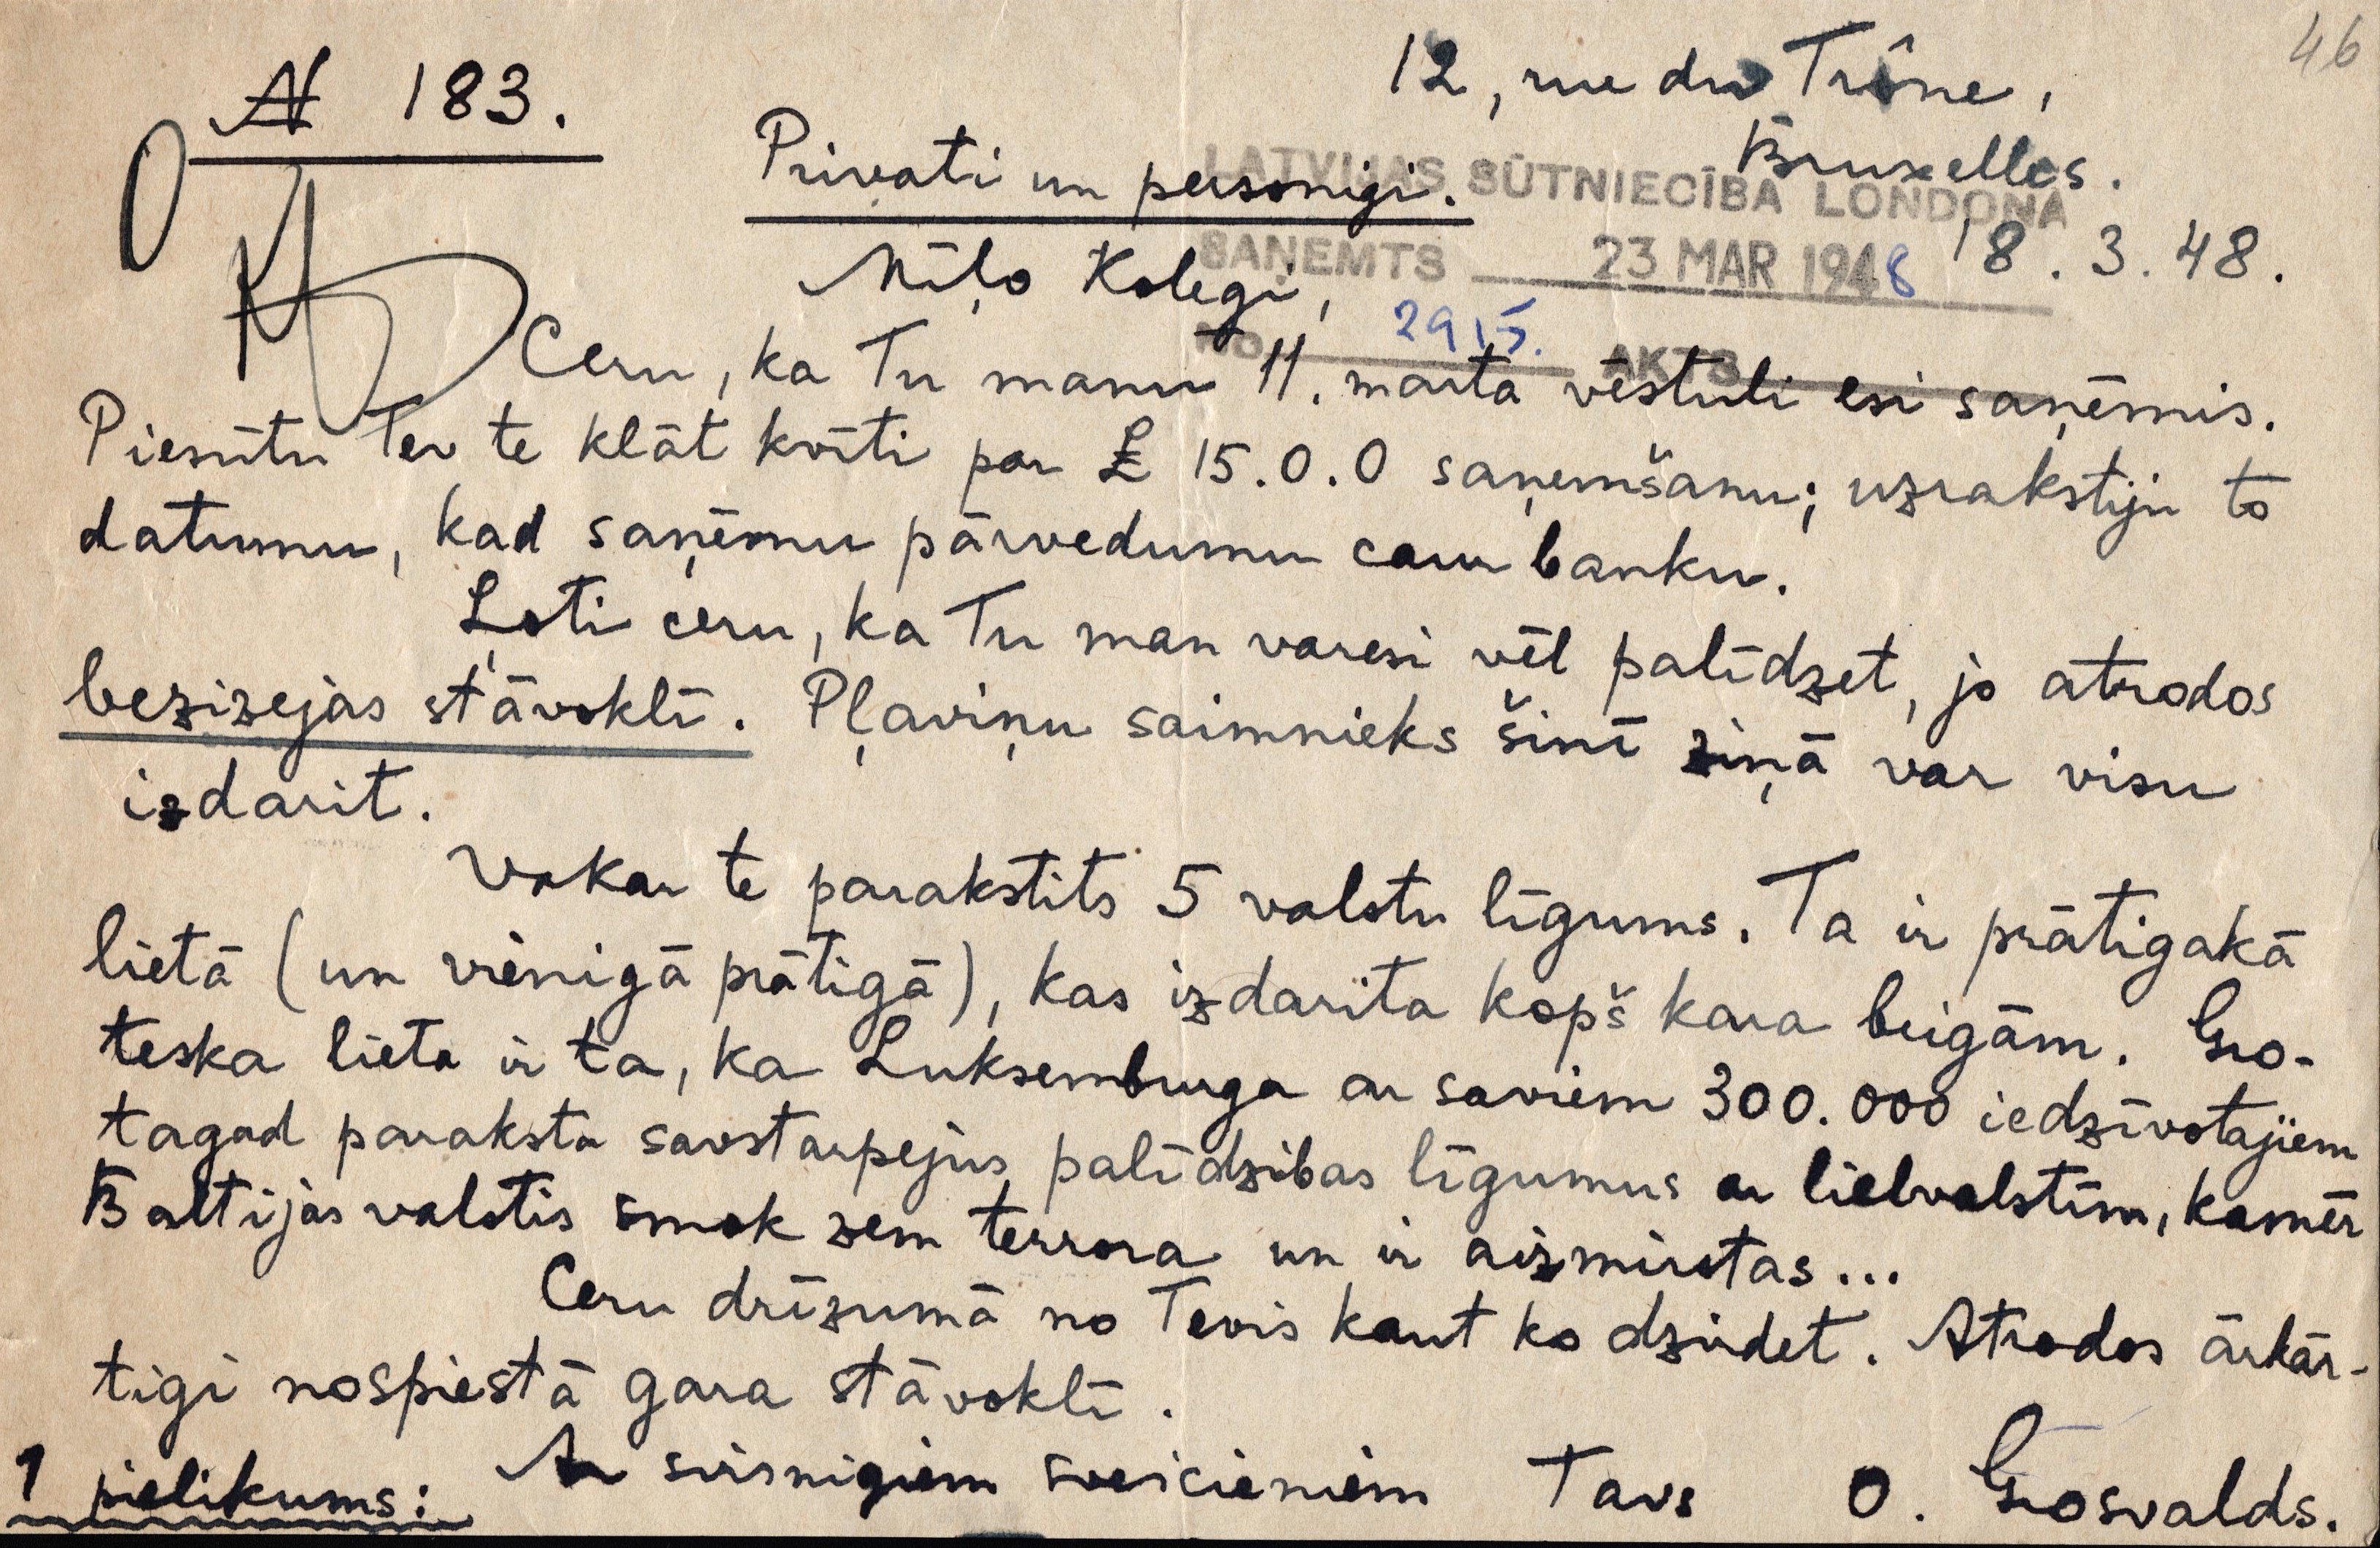 46
12, rue du Trône,
№ 183.
Bruxelles.
Privati un personigi.
LATVIJAS SŪTNIECĪBA LONDONĀ
18.3.48.
SAŅEMTS 23 MAR 1948
Mīļo Kolegi,
No 2915. AKTS
Ceru, ka Tu manu 11. marta vēstuli esi saņēmis.
Piesūtu Tev te klāt kvīti par £ 15.0.0 saņemšanu; uzrakstiju to
datumu, kad saņēmu pārvedumu caur banku.
Ļoti ceru, ka Tu man varesi vēl palīdzet, jo atrodos
bezizejas stāvoklī. Pļaviņu saimnieks šinī ziņā var visu
izdarit.
Vakar te parakstits 5 valstu līgums. Ta ir prātigakā
lietā (un vienigā prātigā), kas izdarita kopš kara beigām. Gro-
teska lieta ir ta, ka Luksemburga ar saviem 300.000 iedzīvotajiem
tagad paraksta savstarpejus palīdzibas līgumus ar lielvalstīm, kamēr
Baltijas valstis smok zem terrora un ir aizmirstas...
Ceru drīzumā no Tevis kaut ko dzirdet. Atrodos ārkār-
tigi nospiestā gara stāvoklī.
Ar sirsnigiem sveicieniem Tavs O. Grosvalds.
1 pielikums: